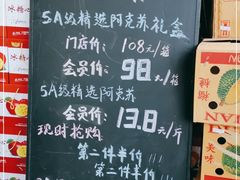 5A级精选阿克苏礼盒
门店价: 108元/箱
会员价: 98元/箱
5A级精选阿克苏
会员价: 13.8元/斤
现时抢购
第二件半价!!!
第二件半价!!!
美味